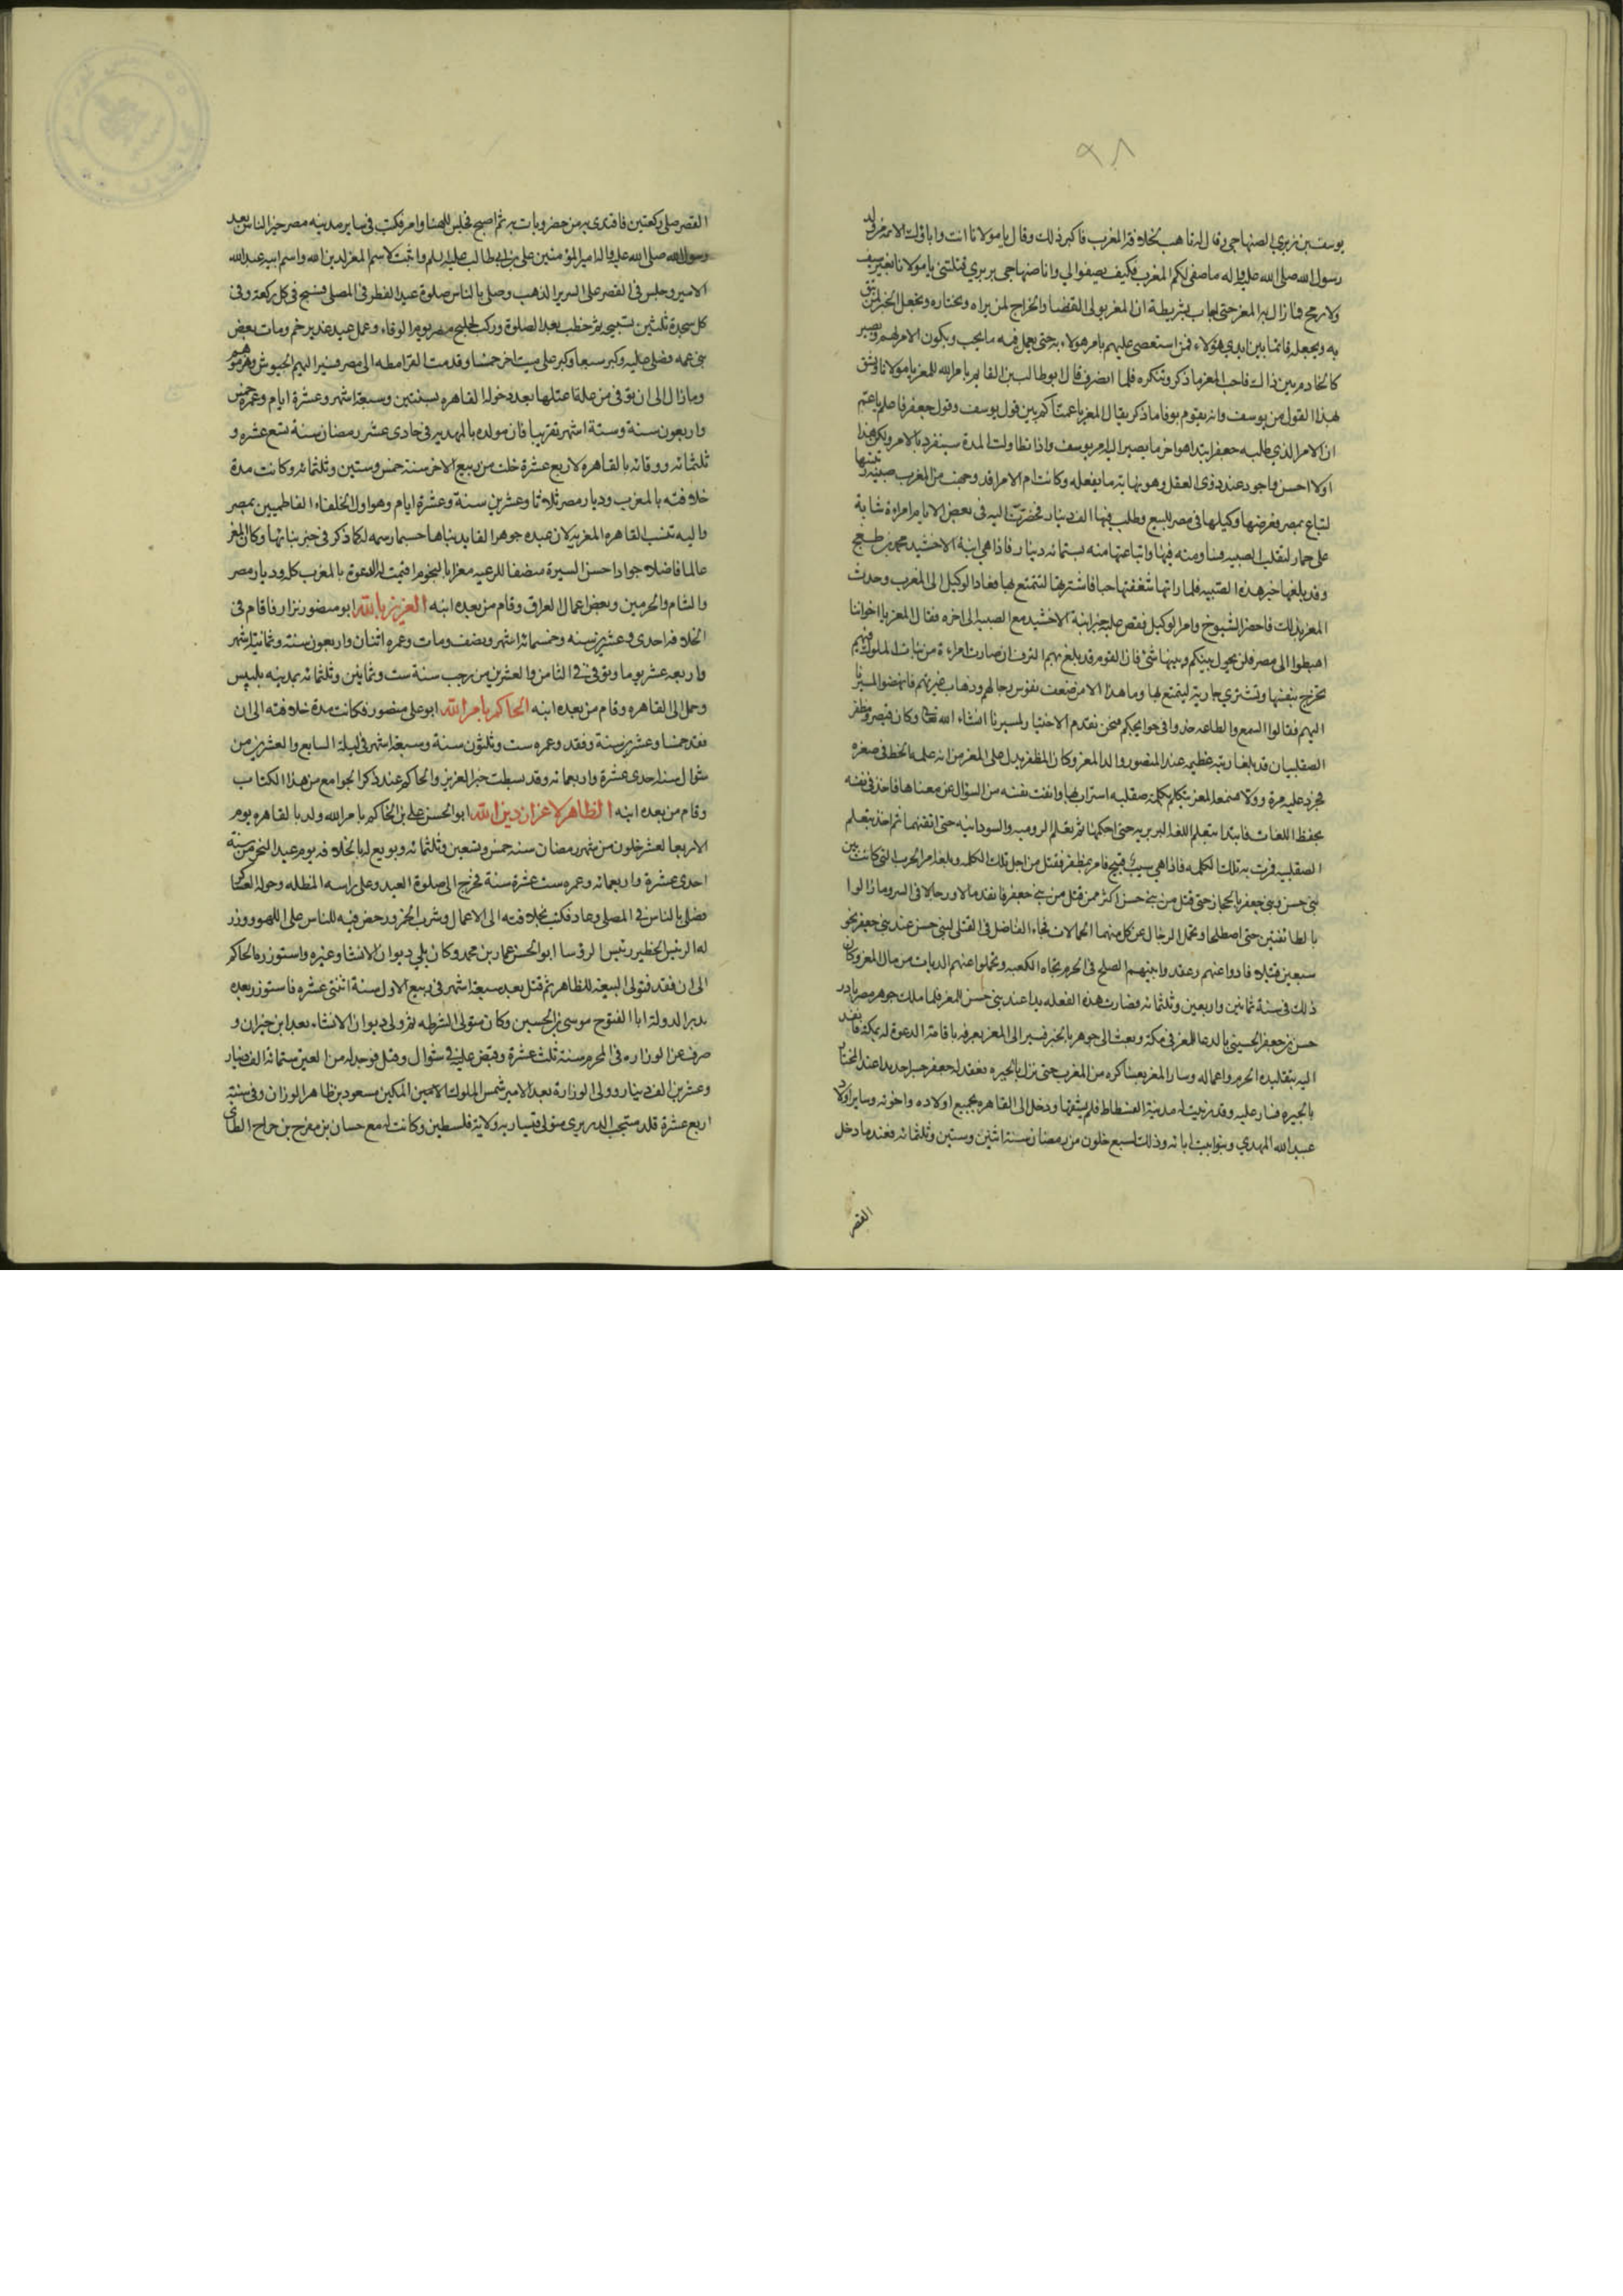 ٩٨
يوسف بن زيري الصنهاجي وقال له تاهب لخلافة المغرب فاكبر ذلك وقال يا مولانا انت واباؤك الائمة من ولد
رسول الله صلى الله عليه واله ما صفى لكم المغرب فكيف يصفوا لي وانا صنهاجي بربري قتلتني يا مولانا بغير سيف
ولا رمح فما زال به المعز حتى اجاب بشريطة ان المعز يولى القضا والخراج لمن يراه ويختاره ويجعل الخبر لمن يثق
به ويجعله قائما بين ايدي هؤلاء فمن استعصى عليهم يامر هولاء به حتى يعمل فيه ما يجب ويكون الامر لهم ويصير
كالخادم بين ذلك فاحب المعز ما ذكر وشكره فلما انصرف قال ابو طالب بن القايم بامر الله للمعز يا مولانا وتثق
بهذا القول من يوسف وانه يقوم بوفا ما ذكر فقال المعز يا عمنا كم بين قول يوسف وقول جعفر فاعلم يا عم
ان الامر الذي طلبه جعفر ابتدا هو اخر ما يصير اليه امر يوسف واذا تطاولت المدة سينفرد بالامر ولكن هذا
اولا احسن واجود عند ذوى العقل وهو نهاية ما يفعله وكانت ام الامرا قد وجهت من المغرب صبيه
لتباع بمصر فعرضها وكيلها في مصر للبيع وطلب فيها الف دينار فحضرت اليه في بعض الايام امراة شابة
على حمار لتقلب الصبيه فساومته فيها وابتاعتها منه بستمائه دينار فاذا هي ابنة الاخشيد محمد بن طغج
وقد بلغها خبر هذه الصبيه فلما راتها شغفتها حبا فاشترتها لتتمتع بها فعاد الوكيل الى المغرب وحدث
المعز بذلك فاحضر الشيوخ وامر الوكيل فقص عليهم خبر ابنة الاخشيد مع الصبية الى اخره فقال المعز يا اخواننا
اهبطوا الى مصر فلن يحول بينكم وبينها شئ فان القوم قد بلغ بهم الترف ان صارت امراءة من بنات الملوك فيهم
تخرج بنفسها وتشترى جارية ليتمتع بها وما هذا الا من ضعف نفوس رجالهم وذهاب غيرتهم فانهضوا لمسيرنا
اليهم فقالوا السمع والطاعه خذوا في حوايجكم فنحن نقدم الاختيار لمسيرنا انشاء الله تعالى وكان قيصر ومظفر
الصقلبيان قد بلغا رتبه عظيمه عند المنصور والد المعز وكان المظفر يدل على المعز من انه علمه الخط في صغره
فحرد عليه مرة وولا فسمعه المعز يتكلم بكلمة صقلبيه استراب بها وانفت نفسه من السؤال عن معناها فاخذ في نفسه
بحفظ اللغات فابتدا بتعلم اللغة البربريه حتى احكمها ثم تعلم الروميه والسودانيه حتى اتقنهما ثم اخذ يتعلم
الصقلبيه فمرت به تلك الكلمه فاذا هي سب قبيح فامر بمظفر فقتل من اجل تلك الكلمه وبلغه امر الحرب التي كانت بين
بني حسن وبني جعفر بالحجاز حتى قتل من بني حسن اكثر ممن قتل من بني جعفر فانفذ مالا ورجالا في السر وما زالوا
بالطائفتين حتى اصطلحا وتحمل الرجال عن كل منهما الحمالات فجاء الفاضل في القتلى لبني حسن عند بني جعفر نحو
سبعين قتيلا فادوا عنهم وعقدوا بينهم الصلح في الحرم تجاه الكعبه وتحملوا عنهم الديات من مال المعز وكان
ذلك في سنة ثمانين واربعين وثلثمائه فصارت هذه الفعله يدا عند بني حسن للمعز فلما ملك جوهر مصر بادر
حسن بن جعفر الحسيني بالدعا للمعز في مكة وبعث الى جوهر بالخبر فسير الى المعز يعرفه باقامة الدعوة له بمكة فانفذ
اليه بتقليده الحرم واعماله وسار المعز بعساكره من المغرب حتى نزل بالجيزه فعقد له جعفر جسرا جديدا عند المختار
بالجيزه فسار عليه وقد زينت له مدينة الفسطاط فلم يشقها ودخل الى القاهره بجميع اولاده واخوته وساير اولاد
عبيد الله المهدي وبتوابيت ابائه وذلك لسبع خلون من رمضان سنة اثنين وستين وثلثمائه فعندما دخل
القصر
القصر صلى ركعتين فاقتدى به من حضر وبات به ثم اصبح فجلس للهنا وامر فكتب في ساير مدينه مصر خير الناس بعد
رسول الله صلى الله عليه واله امير المؤمنين على بن ابي طالب عليه السلم واثبت اسم المعز لدين الله واسم ابيه عبد الله
الامير وجلس في القصر على السرير الذهب وصلى بالناس صلوة عيد الفطر في المصلى فسبح في كل ركعة وفي
كل سجدة ثلثين تسبيحه ثم خطب بعد الصلوة وركب لخليج مصر يوم الوفاء وعمل عيد غدير خم ومات بعض
بني عمه فصلى عليه وكبر سبعا وكبر على ميت اخر خمسا وقدمت القرامطه الى مصر فسير اليهم الجيوش وهزموهم
وما زال الى ان توفى من علة اعتلها بعد دخوله القاهره بسنتين وسبعة اشهر وعشرة ايام وعمره خمس
واربعون سنة وستة اشهر تقريبا فان مولده بالمهدية في حادى عشر رمضان سنة تسع عشره و
ثلثمائه ووفاته بالقاهره لاربع عشرة خلت من ربيع الاخر سنة خمس وستين وثلثمائه وكانت مدة
خلافته بالمغرب وديار مصر ثلاثا وعشرين سنة وعشرة ايام وهو اول الخلفاء الفاطميين بمصر
واليه تنسب القاهره المعزيه لان عبده جوهر القايد بناها حسبما رسمه له كما ذكر في خبر بنائها وكان المعز
عالما فاضلا جوادا حسن السيرة منصفا للرعيه مغرما بالنجوم اقيمت له الدعوة بالمغرب كله وديار مصر
والشام والحرمين وبعض اعمال العراق وقام من بعده ابنه العزيز بالله ابو منصور نزار فاقام في
الخلافه احدى وعشرين سنه وخمسة اشهر ونصف ومات وعمره اثنان واربعون سنة وثمانية اشهر
واربعه عشر يوما وتوفي في الثامن والعشرين من رجب سنة ست وثمانين وثلثمائه بمدينه بلبيس
وحمل الى القاهره وقام من بعده ابنه الحاكم بامر الله ابو على منصور فكانت مدة خلافته الى ان
فقد خمسا وعشرين سنة وفقد وعمره ست وثلثون سنة وسبعة اشهر في ليلة السابع والعشرين من
شوال سنه احدى عشرة واربعمائه وقد بسطت خبر العزيز والحاكم عند ذكر الجوامع من هذا الكتاب
وقام من بعده ابنه الظاهر لاعزاز دين الله ابو الحسن على بن الحاكم بامر الله ولد بالقاهره يوم
الاربعا لعشر خلون من شهر رمضان سنه خمس وتسعين وثلثمائه وبويع له بالخلافه يوم عيد النحر سنة
احدى عشرة واربعمائه وعمره ست عشرة سنة فخرج الى صلوة العيد وعلى راسه المظله وحوله العساكر
فصلى بالناس في المصلى وعاد فكتب بخلافته الى الاعمال وشرب الخمر ورخص فيه للناس على اللهو ووزر
له الرئيس الخطير رئيس الرؤسا ابو الحسن عمار بن محمد وكان يلي ديوان الانشا وغيره واستوزره الحاكم
الى ان فقد فتولى البيعة للظاهر ثم قتل بعد سبعة اشهر في ربيع الاول سنة اثنتى عشره فاستوزر بعده
بدر الدولة ابا الفتوح موسى بن الحسين وكان متولى الشرطه ثم ولى ديوان الانشاء بعد ابن خيران و
صرف عن الوزاره في المحرم سنة ثلث عشرة وقبض عليه في شوال وقتل فوجد له من العين ستمائة الف دينار
وعشرين الف دينار وولى الوزارة بعد الامير شمس الملوك الامين المكين مسعود بن ظاهر الوزان وفي سنة
اربع عشرة قلد منتجب الدربرى متولي قيساريه ولاية فلسطين وكانت له مع حسان بن مفرج بن جراح الطاى